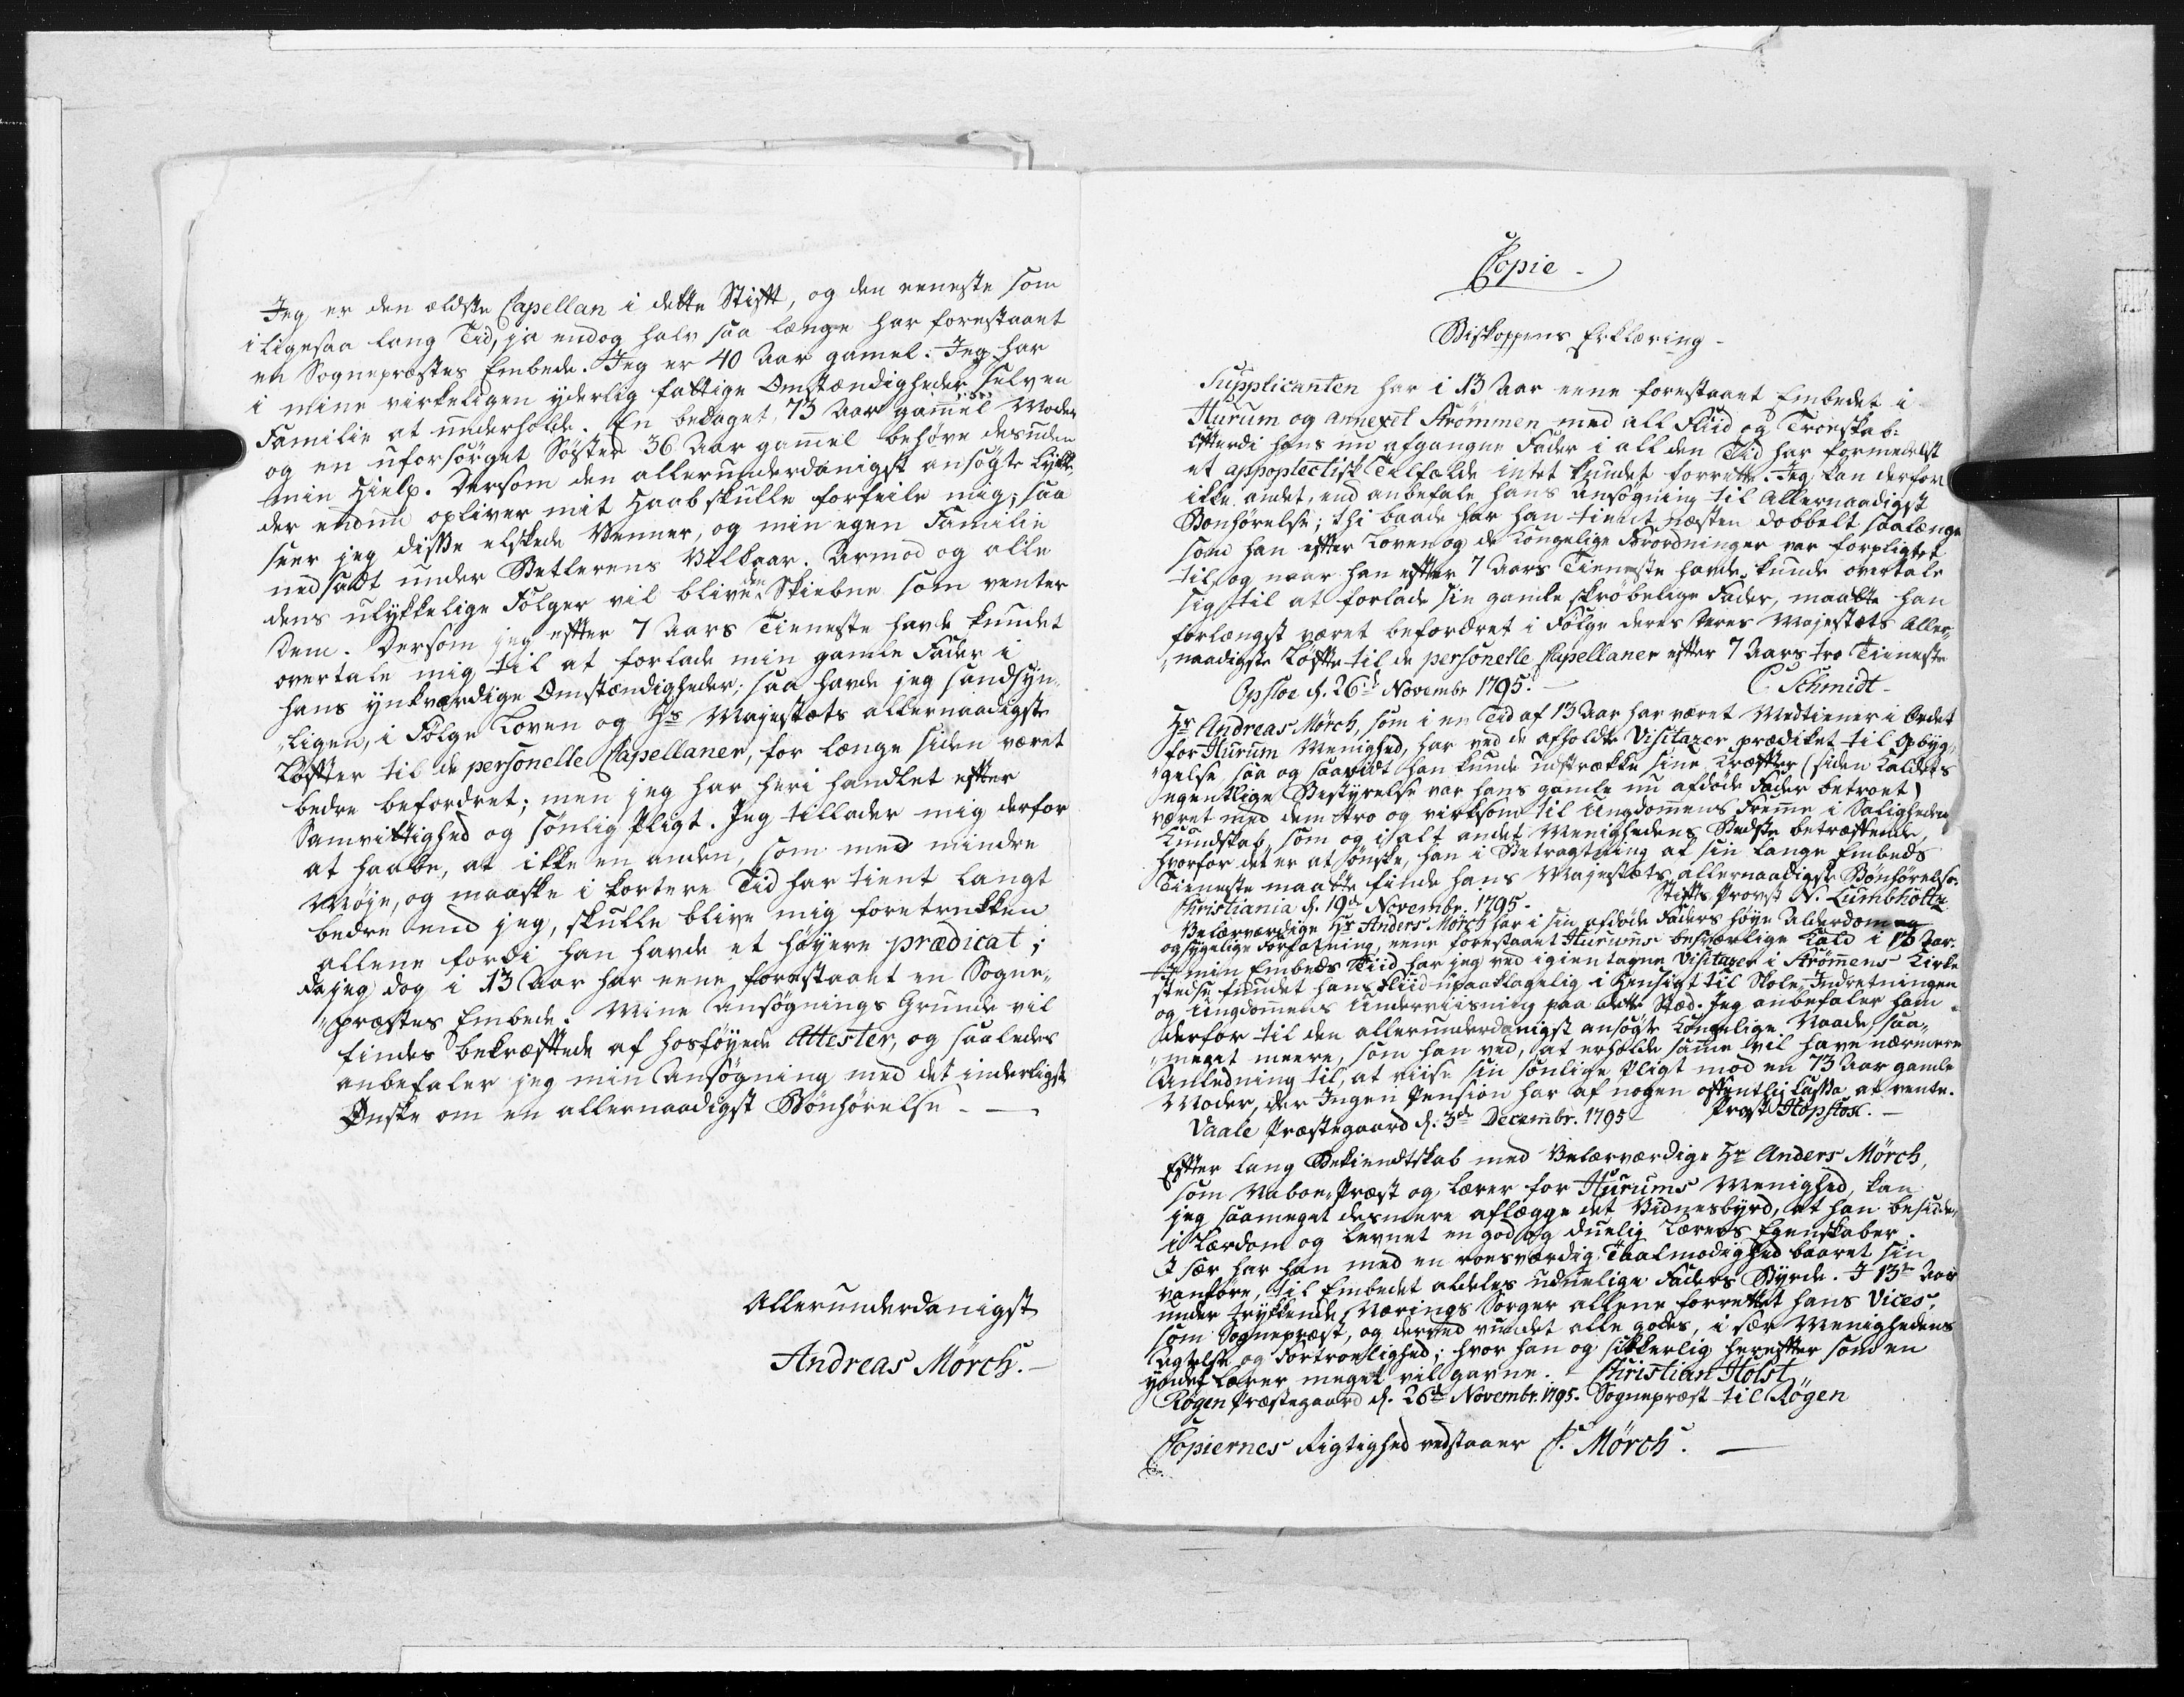 Jeg er den ældste Capellan i dette Stift, og den eeneste som
i ligesaa lang Tid, ja endog halv saa længe har forestaaet
en Sognepræstes Embede. Jeg er 40 Aar gamel. Jeg har
i mine virkeligen yderlig fattige Omstændigheder selv en
Familie at underholde. En bedaget, 73 Aar gammel Moder
og en uforsørget Søster 36 Aar gammel behøve desuden
min Hielp. Dersom den allerunderdanigst ansøgte Lykke
der endnu opliver mit Haab skulle forfeile mig; saa
seer jeg disse elskede Venner, og min egen Familie
nedsadt under Betlerens Vilkaar. Armod og alle
dens ulykkelige Følger vil blive den Skiebne som venter
Dem. Dersom jeg efter 7 Aars Tieneste havde kundet
overtale mig til at forlade min gamle Fader i
hans ynkværdige Omstændigheder; saa havde jeg sandsyn-
„ligen, i Følge Loven og Hs Majestæts allernaadigste
Løfter til de personelle Capellaner, for længe siden været
bedre befordret; men jeg har heri handlet efter
Samvittighed og sønlig Pligt. Jeg tillader mig derfor
at haabe, at ikke en anden, som med mindre
Møje, og maaske i kortere Tid har tient langt
bedre end jeg, skulle blive mig foretrukken
allene fordi han havde et høyere prædicat;
da jeg dog i 13 Aar har eene forestaaet en Sogne-
„præstes Embede. Mine Ansøgnings Grunde vil
findes bekræftede af hosføyede Attester, og saaledes
anbefaler jeg min Ansøgning med det inderligste
Ønske om en allernaadigst Bønhørelse. —
Allerunderdanigst
Andreas Mörch. —
Copie —
Biskoppens Erklæring —
Supplicanten har i 13 Aar eene forestaaet Embedet i
Hurum og annexet Strømmen med all Fliid og Troeskab.
Efterdi hans nu afgangne Fader i all den Tid har formedelst
et appoplectisk Tilfælde intet kundet forrette. Jeg kan derfor
ikke andet, end anbefale hans Ansøgning til Allernaadigst
Bønhørelse; thi baade har han tient næsten dobbelt saalænge
som han efter Loven og de Kongelige Forordninger var forpligtet
til, og naar han efter 7 Aars Tieneste havde kunde overtale
sig til at forlade sin gamle skrøbelige Fader, maatte han
forlængst været befordret i Følge deres Deres Majestæts Aller-
„naadigste Løfte til de personelle Capellaner efter 7 Aars tro Tieneste
Opsloe d. 26d Novembr 1795. — C. Schmidt —
Hr Andreas Mörch, som i en Tid af 13 Aar har været Medtiener i Ordet
for Hurum Menighed, har ved de afholdte Visitazer prædiket til Opbyg-
„gelse, saa og saavidt han kunde udstrække sine Kræfter (siden Kaldets
egentlige Bestyrelse var hans gamle nu afdøde Fader betroet)
været med dem tro og virksom til Ungdommens Fremme i Saligheden
Kundskab, som og i alt andet Menighedens Bedste betræffende,
hvorfor det er at ønske, han i Betragtning af sin lange Embeds
Tieneste maatte finde hans Majestæts allernaadigste Bønhørelse.
Christiania d. 19d Novembr. 1795. Stifts Provst N. Lumbholtz
Velærværdige Hr Anders Mörch har i sin afdøde Faders høye Alderdom og
og sygelige Forfatning, eene forestaaet Hurums besværlige Kald i 13 Aar.
I min Embeds Tiid har jeg ved igientagne Visitazer i Strömmens Kirke
stedse fundet hans Fliid upaaklagelig i Hensigt til Skole Indretningen
og Ungdommens Underviisning paa dette Stæd. Jeg anbefaler ham
derfor til den allerunderdanigst ansøgte Kongelige Naade, saa-
„meget meere, som han ved, at erholde samme vil have nærmere
Anledning til, at viise sin sønlige Pligt mod en 73 Aar gamle
Moder, der Ingen Pension har af nogen offentlig Cassa at vente.
Vaale Præstegaard d. 3de Decembr. 1795 Provst Hopstok. —
Efter lang Bekiendtskab med Velærværdige Hr Anders Mörch,
som Naboe-Præst og Lærer for Hurums Menighed, kan
jeg saameget desmere aflægge det Vidnesbyrd, at han besidder
i Lærdom og Levnet en god og duelig Lærers Egenskaber.
I sær har han med en roesværdig Taalmodighed baaret sin
vanføre, til Embedet aldeles uduelige Faders Byrde. I 13 Aar
under trykkende Nærings Sorger allene forrettet hans Vices,
som Sognepræst, og derved vundet alle godes, i sær Menighedens
Agtelse og Fortroelighed; hvor han og sikkerlig herefter som en
yndet Lærer meget vil gavne. Christian Holst
Røgen Præstegaard d. 26de Novembr. 1795. Sognepræst til Røgen
Copiernes Rigtighed vedstaaer A. Mörch. —